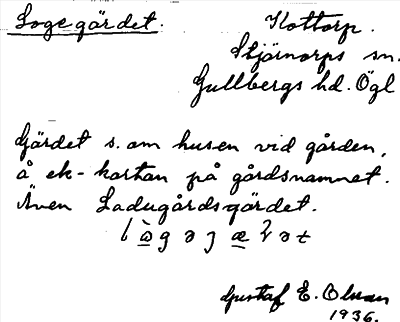 Logegärdet.
Kottorp.
Stjärnorps sn.
Gullbergs hd. Ögl
Gärdet s. om husen vid gården,
å ek-kartan på gårdsnamnet.
Även Ladugårdsgärdet.
Gustaf E. Olsson
1936.